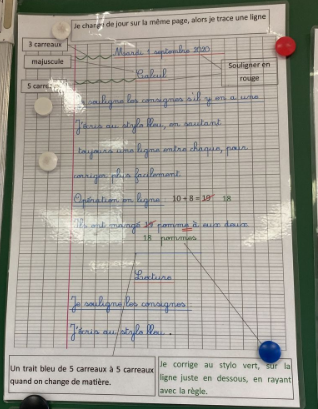 Je change de jour sur la même page, alors je trace une ligne
3 carreaux
Mardi 1 septembre 2020
majuscule
Souligner en
rouge
Calcul
5 carreaux
Je souligne les consignes s'il y en a une
J'écris au stylo bleu, en sautant
toujours une ligne entre chaque, pour
corriger plus facilement
Opération en ligne : 10 + 8 = 19 18
Ils ont mangé 19 pomme à eux deux
18 pommes
Lecture
Je souligne les consignes :
J'écris au stylo bleu.
Un trait bleu de 5 carreaux à 5 carreaux
quand on change de matière.
Je corrige au stylo vert, sur la
ligne juste en dessous, en rayant
avec la règle.